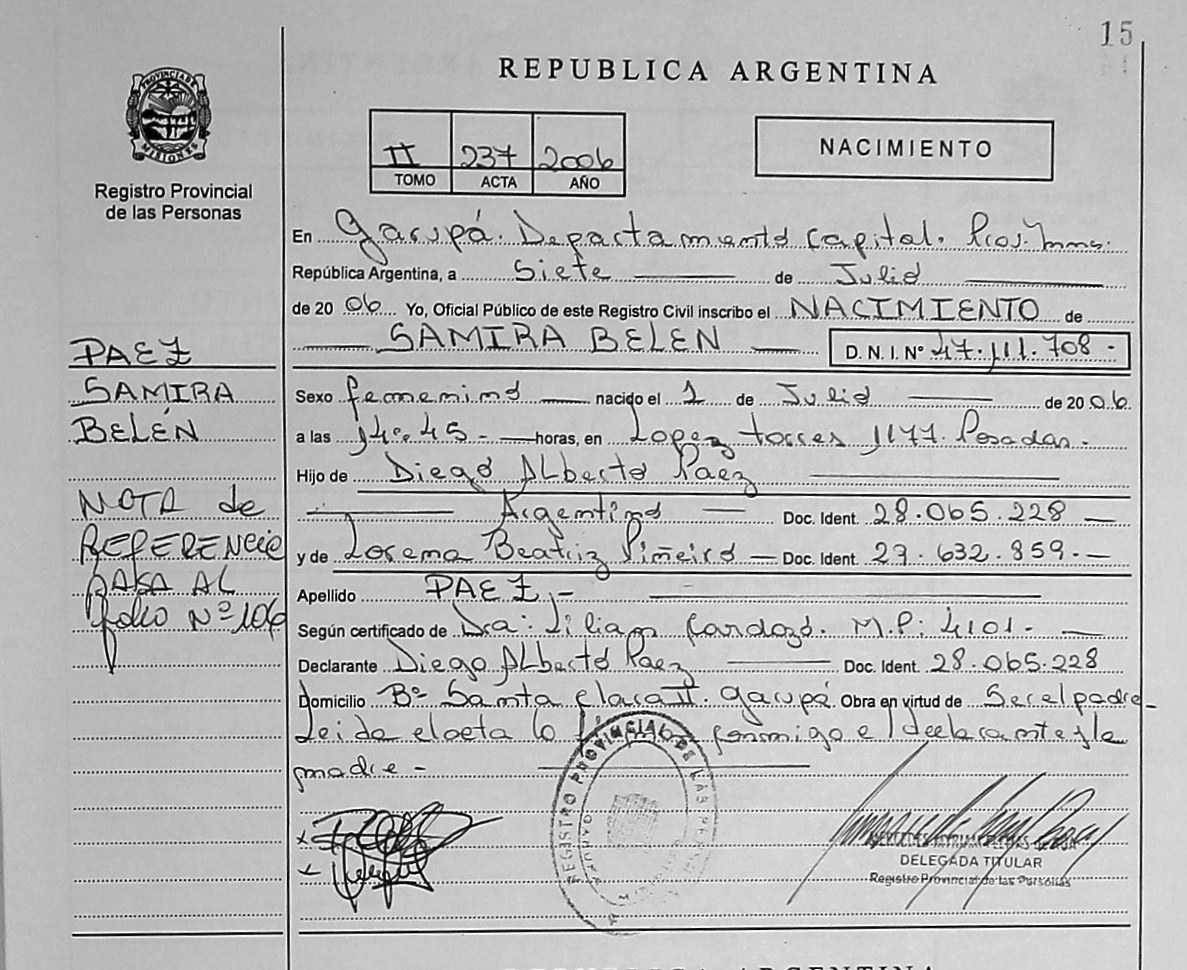 15
REPUBLICA ARGENTINA
PROVINCIA DE
MISIONES
Registro Provincial
de las Personas
II 237 2006
TOMO ACTA AÑO
NACIMIENTO
En Garupá. Departamento Capital. Mnes.
República Argentina, a Siete de Julio
de 20 06 Yo, Oficial Público de este Registro Civil inscribo el NACIMIENTO de
SAMIRA BELEN D. N. I. Nº 47.111.708-
PAEZ
SAMIRA
BELÉN
NOTA de
REFERENCIA
PASA AL
folio Nº 106
Sexo femenino nacido el 1 de Julio de 20 06.
a las 14:45- horas, en Lopez torres 1177. Posadas-
Hijo de Diego Alberto Paez
Argentino Doc. Ident. 28.065.228
y de Lorena Beatriz Piñeiro Doc. Ident. 27.632.859.
Apellido PAEZ-
Según certificado de Dra: Liliam Cardozo. M.P: 4101-
Declarante Diego Alberto Paez Doc. Ident. 28.065.228
Domicilio Bº Santa Clara II. Garupá Obra en virtud de Ser el padre-
Leida el acta la firman conmigo el declarante y la
madre-
REGISTRO PROVINCIAL DE LAS
DELEGADA TITULAR
Registro Provincial de las Personas
REPUBLICA ARGENTINA